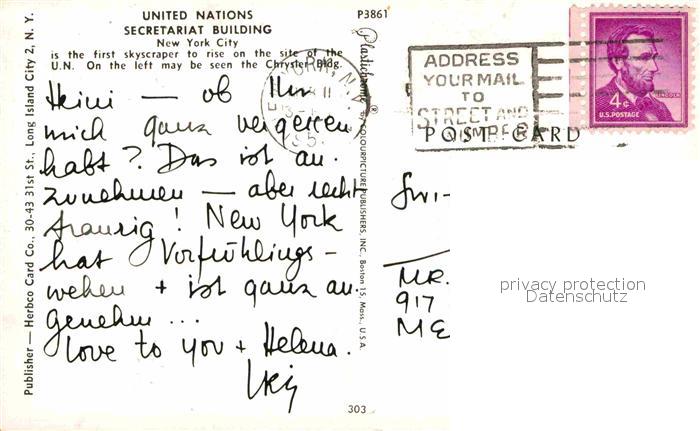 UNITED NATIONS
SECRETARIAT BUILDING
New York City
is the first skyscraper to rise on the site of the
U.N. On the left may be seen the Chrysler Bldg.
P3861
Heini — ob Ihr
mich ganz vergessen
habt? Das ist an-
zunehmen — aber recht
traurig! New York
hat Vorfrühlings-
wehen + ist ganz an-
genehm ...
Love to you + Helena.
303
Publisher — Herbco Card Co., 30-43 31st St., Long Island City 2, N. Y.
Plastichrome ® by COLOURPICTURE PUBLISHERS, INC., Boston 15, Mass., U.S.A.
ADDRESS
YOUR MAIL
TO
STREET AND
NUMBER
POST CARD
4¢
LINCOLN
U.S. POSTAGE
MR.
917
ME
privacy protection
Datenschutz